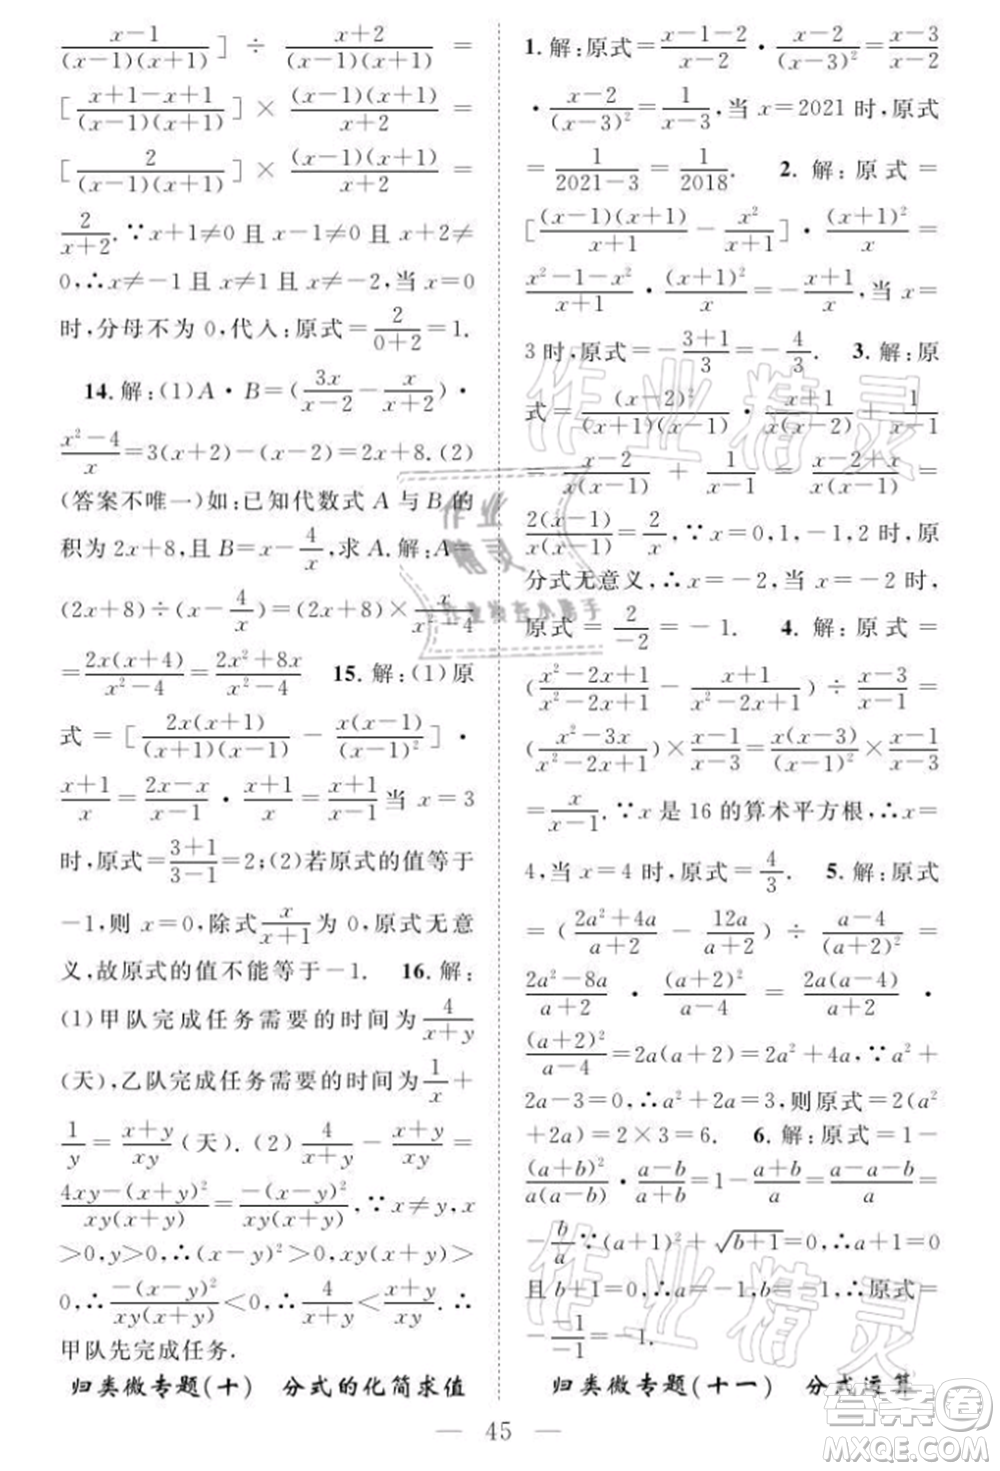 (x−1)/((x−1)(x+1))] ÷ (x+2)/((x−1)(x+1)) =
[(x+1−x+1)/((x−1)(x+1))] × ((x−1)(x+1))/(x+2) =
[2/((x−1)(x+1))] × ((x−1)(x+1))/(x+2) =
2/(x+2).∵x+1≠0 且 x−1≠0 且 x+2≠
0,∴x≠−1 且 x≠1 且 x≠−2,当 x=0
时,分母不为 0,代入:原式=2/(0+2)=1.
14.解:(1)A·B=(3x/(x−2)−x/(x+2))·
(x²−4)/x=3(x+2)−(x−2)=2x+8.(2)
(答案不唯一)如:已知代数式 A 与 B 的
积为 2x+8,且 B=x−4/x,求 A.解:A=
(2x+8)÷(x−4/x)=(2x+8)×x/(x²−4)
=2x(x+4)/(x²−4)=(2x²+8x)/(x²−4) 15.解:(1)原
式=[2x(x+1)/((x+1)(x−1))−x(x−1)/(x−1)²]·
(x+1)/x=x/(x−1)·(x+1)/x=(x+1)/(x−1)当 x=3
时,原式=(3+1)/(3−1)=2;(2)若原式的值等于
−1,则 x=0,除式x/(x+1)为 0,原式无意
义,故原式的值不能等于−1. 16.解:
(1)甲队完成任务需要的时间为4/(x+y)
(天),乙队完成任务需要的时间为1/x+
1/y=(x+y)/xy(天).(2)4/(x+y)−(x+y)/xy=
(4xy−(x+y)²)/(xy(x+y))=−(x−y)²/(xy(x+y)),∵x≠y,x
>0,y>0,∴(x−y)²>0,xy(x+y)>
0,∴−(x−y)²/(xy(x+y))<0,∴4/(x+y)<(x+y)/xy.∴
甲队先完成任务.
归类微专题(十) 分式的化简求值
1.解:原式=(x−1−2)/(x−2)·(x−2)/(x−3)²=(x−3)/(x−2)
·(x−2)/(x−3)²=1/(x−3),当 x=2021 时,原式
=1/(2021−3)=1/2018. 2.解:原式=
[(x−1)(x+1)/(x+1)−x²/(x+1)]·(x+1)²/x=
(x²−1−x²)/(x+1)·(x+1)²/x=−(x+1)/x,当 x=
3时,原式=−(3+1)/3=−4/3. 3.解:原
式=(x−2)²/((x+1)(x−1))·(x+1)/(x(x−2))+1/(x−1)
=(x−2)/(x(x−1))+1/(x−1)=(x−2+x)/(x(x−1))=
2(x−1)/(x(x−1))=2/x,∵x=0,1,−1,2 时,原
分式无意义,∴x=−2,当 x=−2 时,
原式=2/−2=−1. 4.解:原式=
((x²−2x+1)/(x²−2x+1)−(x+1)/(x²−2x+1))÷(x−3)/(x−1)=
((x²−3x)/(x²−2x+1))×(x−1)/(x−3)=x(x−3)/(x−1)²×(x−1)/(x−3)
=x/(x−1).∵x 是 16 的算术平方根,∴x=
4,当 x=4 时,原式=4/3. 5.解:原式
=((2a²+4a)/(a+2)−12a/(a+2))÷(a−4)/(a+2)²=
(2a²−8a)/(a+2)·(a+2)²/(a−4)=2a(a−4)/(a+2)·
(a+2)²/(a−4)=2a(a+2)=2a²+4a,∵a²+
2a−3=0,∴a²+2a=3,则原式=2(a²
+2a)=2×3=6. 6.解:原式=1−
(a+b)²/(a(a−b))·(a−b)/(a+b)=1−(a+b)/a=(a−a−b)/a=
−b/a∵(a+1)²+√(b+1)=0,∴a+1=0
且 b+1=0,∴a=−1,b=−1,∴原式=
−(−1)/(−1)=−1.
归类微专题(十一) 分式运算
45
作业精灵
作业精灵
作业精灵
答案圈
MXQE.COM